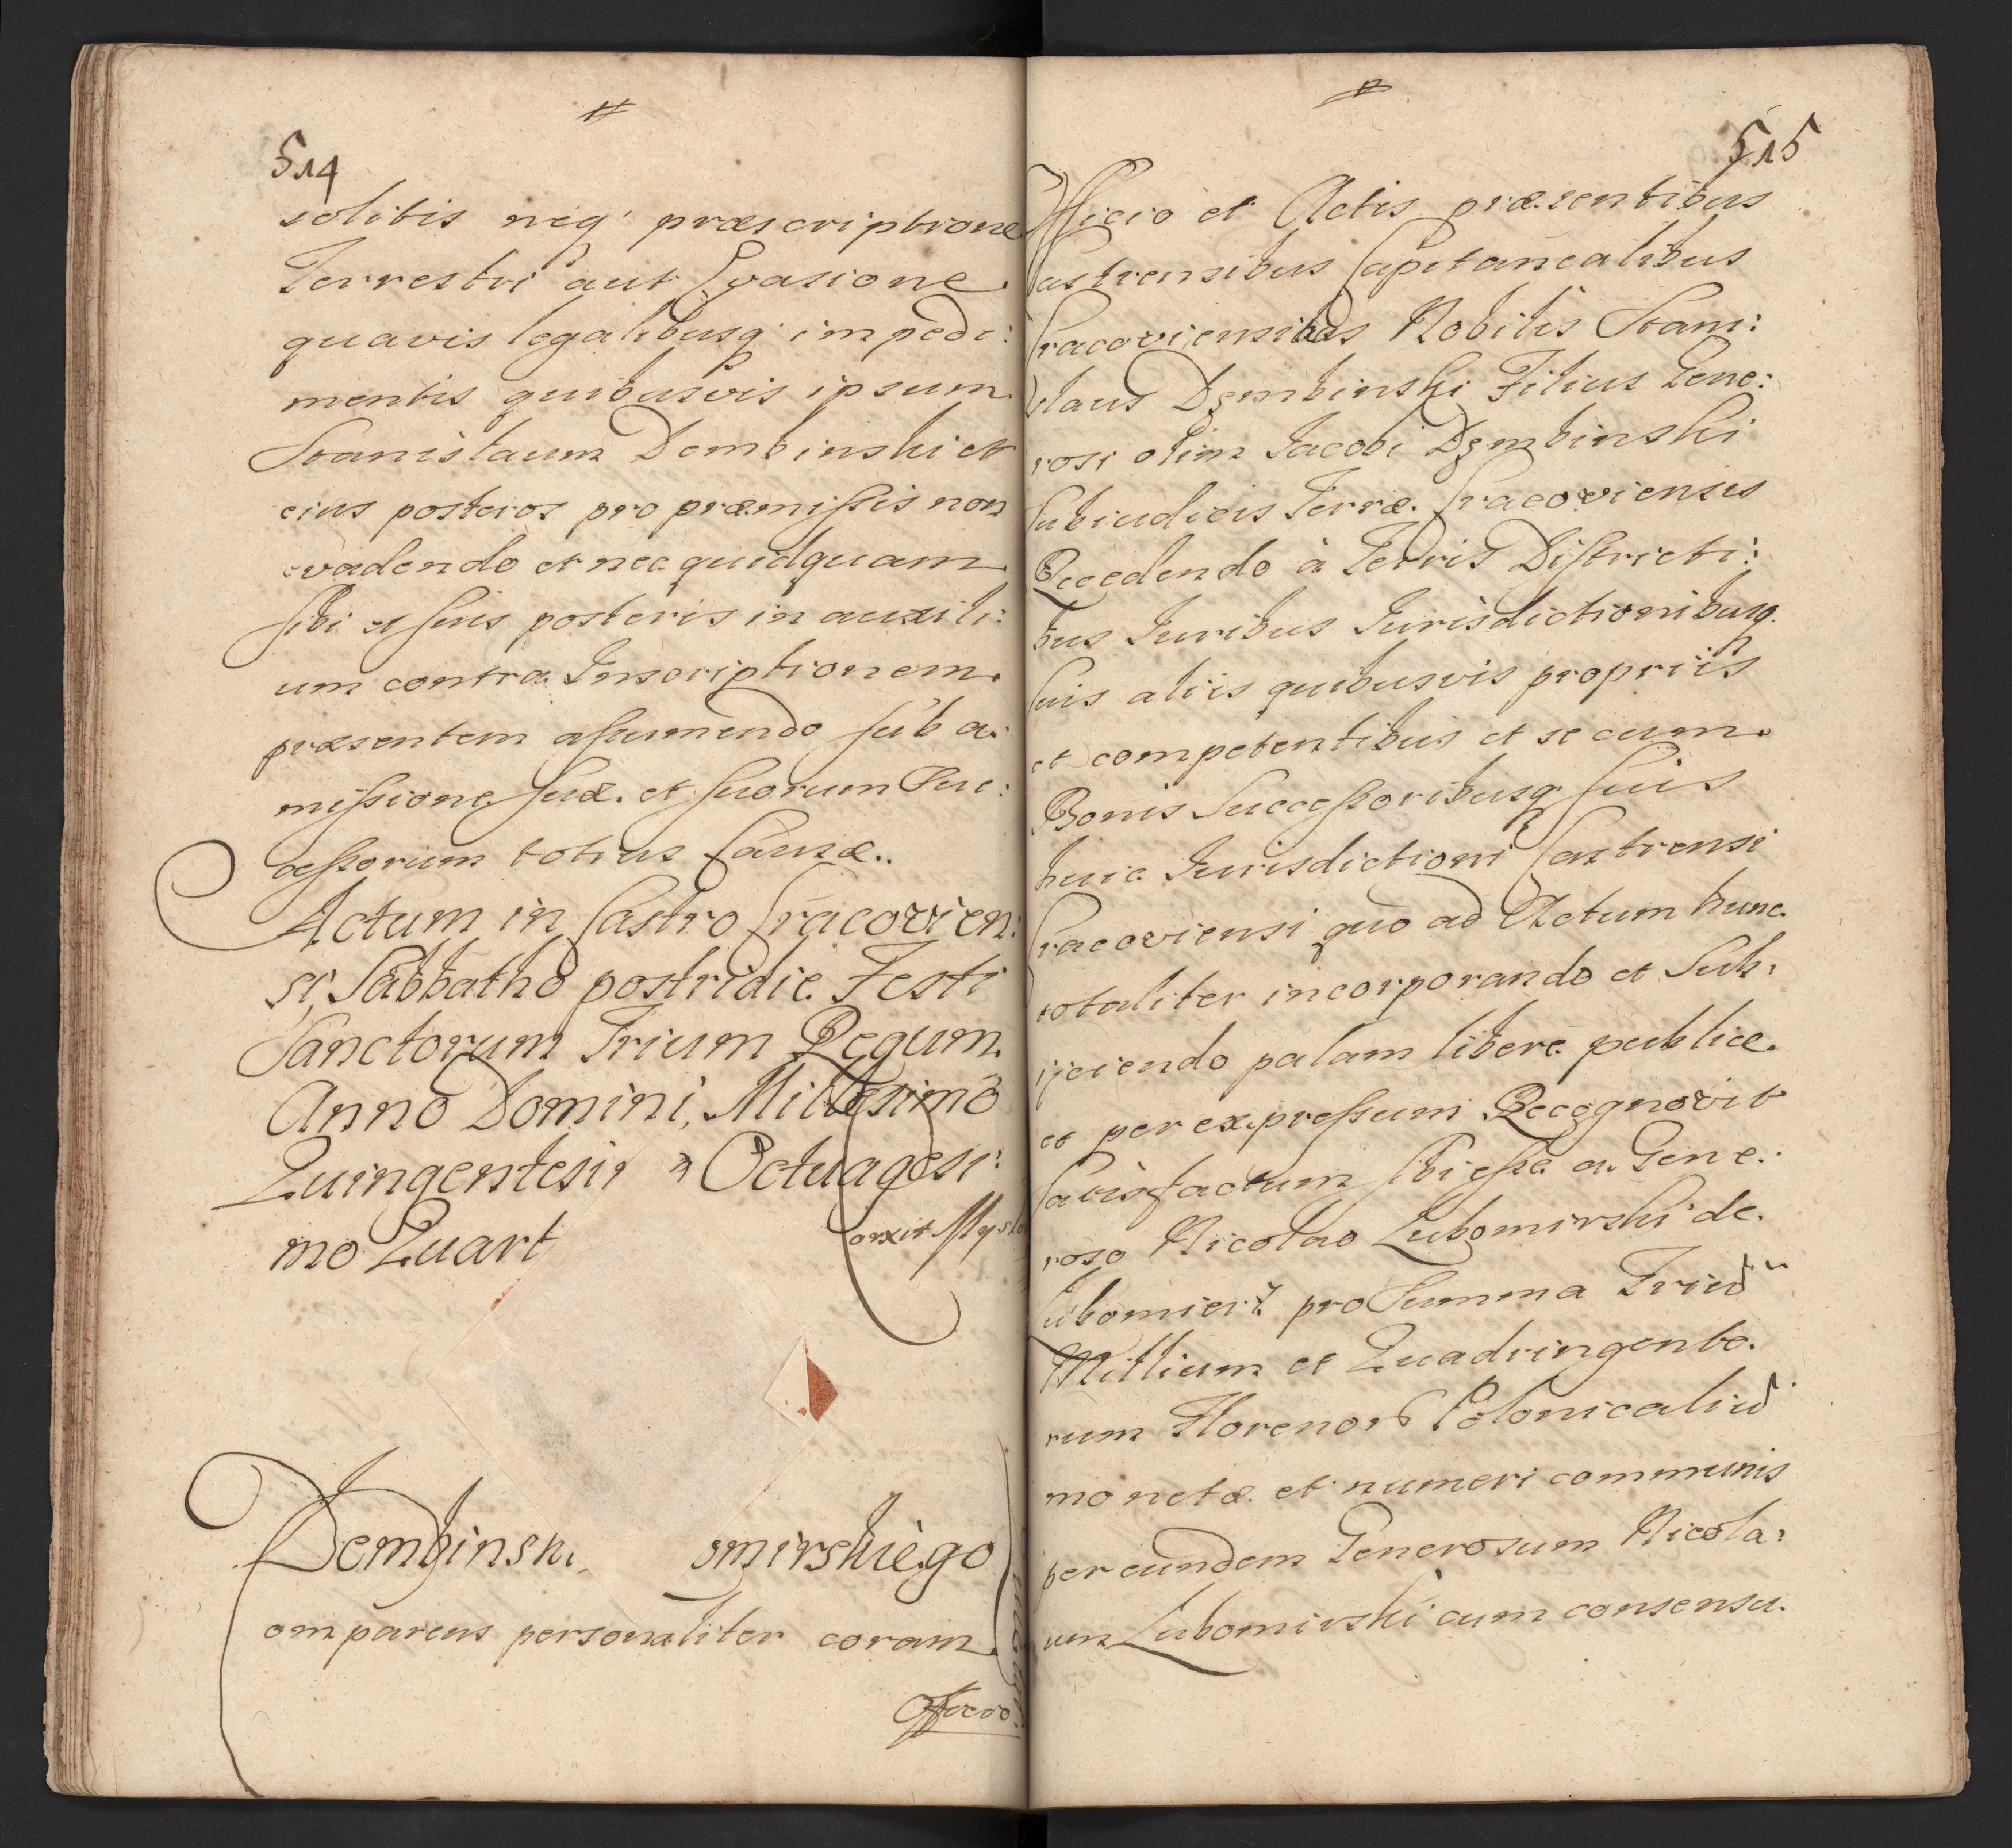 514
solitis neq præscriptione
Terrestri aut Evasione
quavis legalibusq impedi:
mentis quibusvis ipsum
Stanislaum Dembinski et
eius posteros pro præmissis non
evadendo et nec quidquam
sibi et suis posteris in auxili:
um contra Inscriptionem
præsentem assumendo sub a:
missione suæ et suorum Suc:
cessorum totius Causæ..
Actum in Castro Cracovien:
si, Sabbatho postridie Festi
Sanctorum Trium Regum
Anno Domini, Millesimo
Quingentesi Octuagesi:
mo Quart
Dembinski omirskiego
omparens personaliter coram
Officio
515
Officio et Actis præsentibus
Castrensibus Capitanealibus
Cracoviensibus Nobilis Stani:
slaus Dęmbinski Filius Gene:
rosi olim Jacobi Dęmbinski
Subiudicis Terræ Cracoviensis
Recedendo à Terris Districti:
bus Juribus Jurisdictionibusq
suis aliis quibusvis propriis
et competentibus et se cum
Bonis Successoribusq suis
huic Jurisdictioni Castrensi
Cracoviensi quo ad Actum hunc
totaliter incorporando et Sub:
ijciendo palam libere publice
et per expressum Recognovit
satisfactum sibi esse a Gene:
roso Nicolao Lubomirski de
Lubomierz pro Summa Triu
Millium et Quadringento
rum Florenor Polonicaliu
monetæ et numeri communis
per eundem Generosum Nicola:
um Lubomirski cum consensu